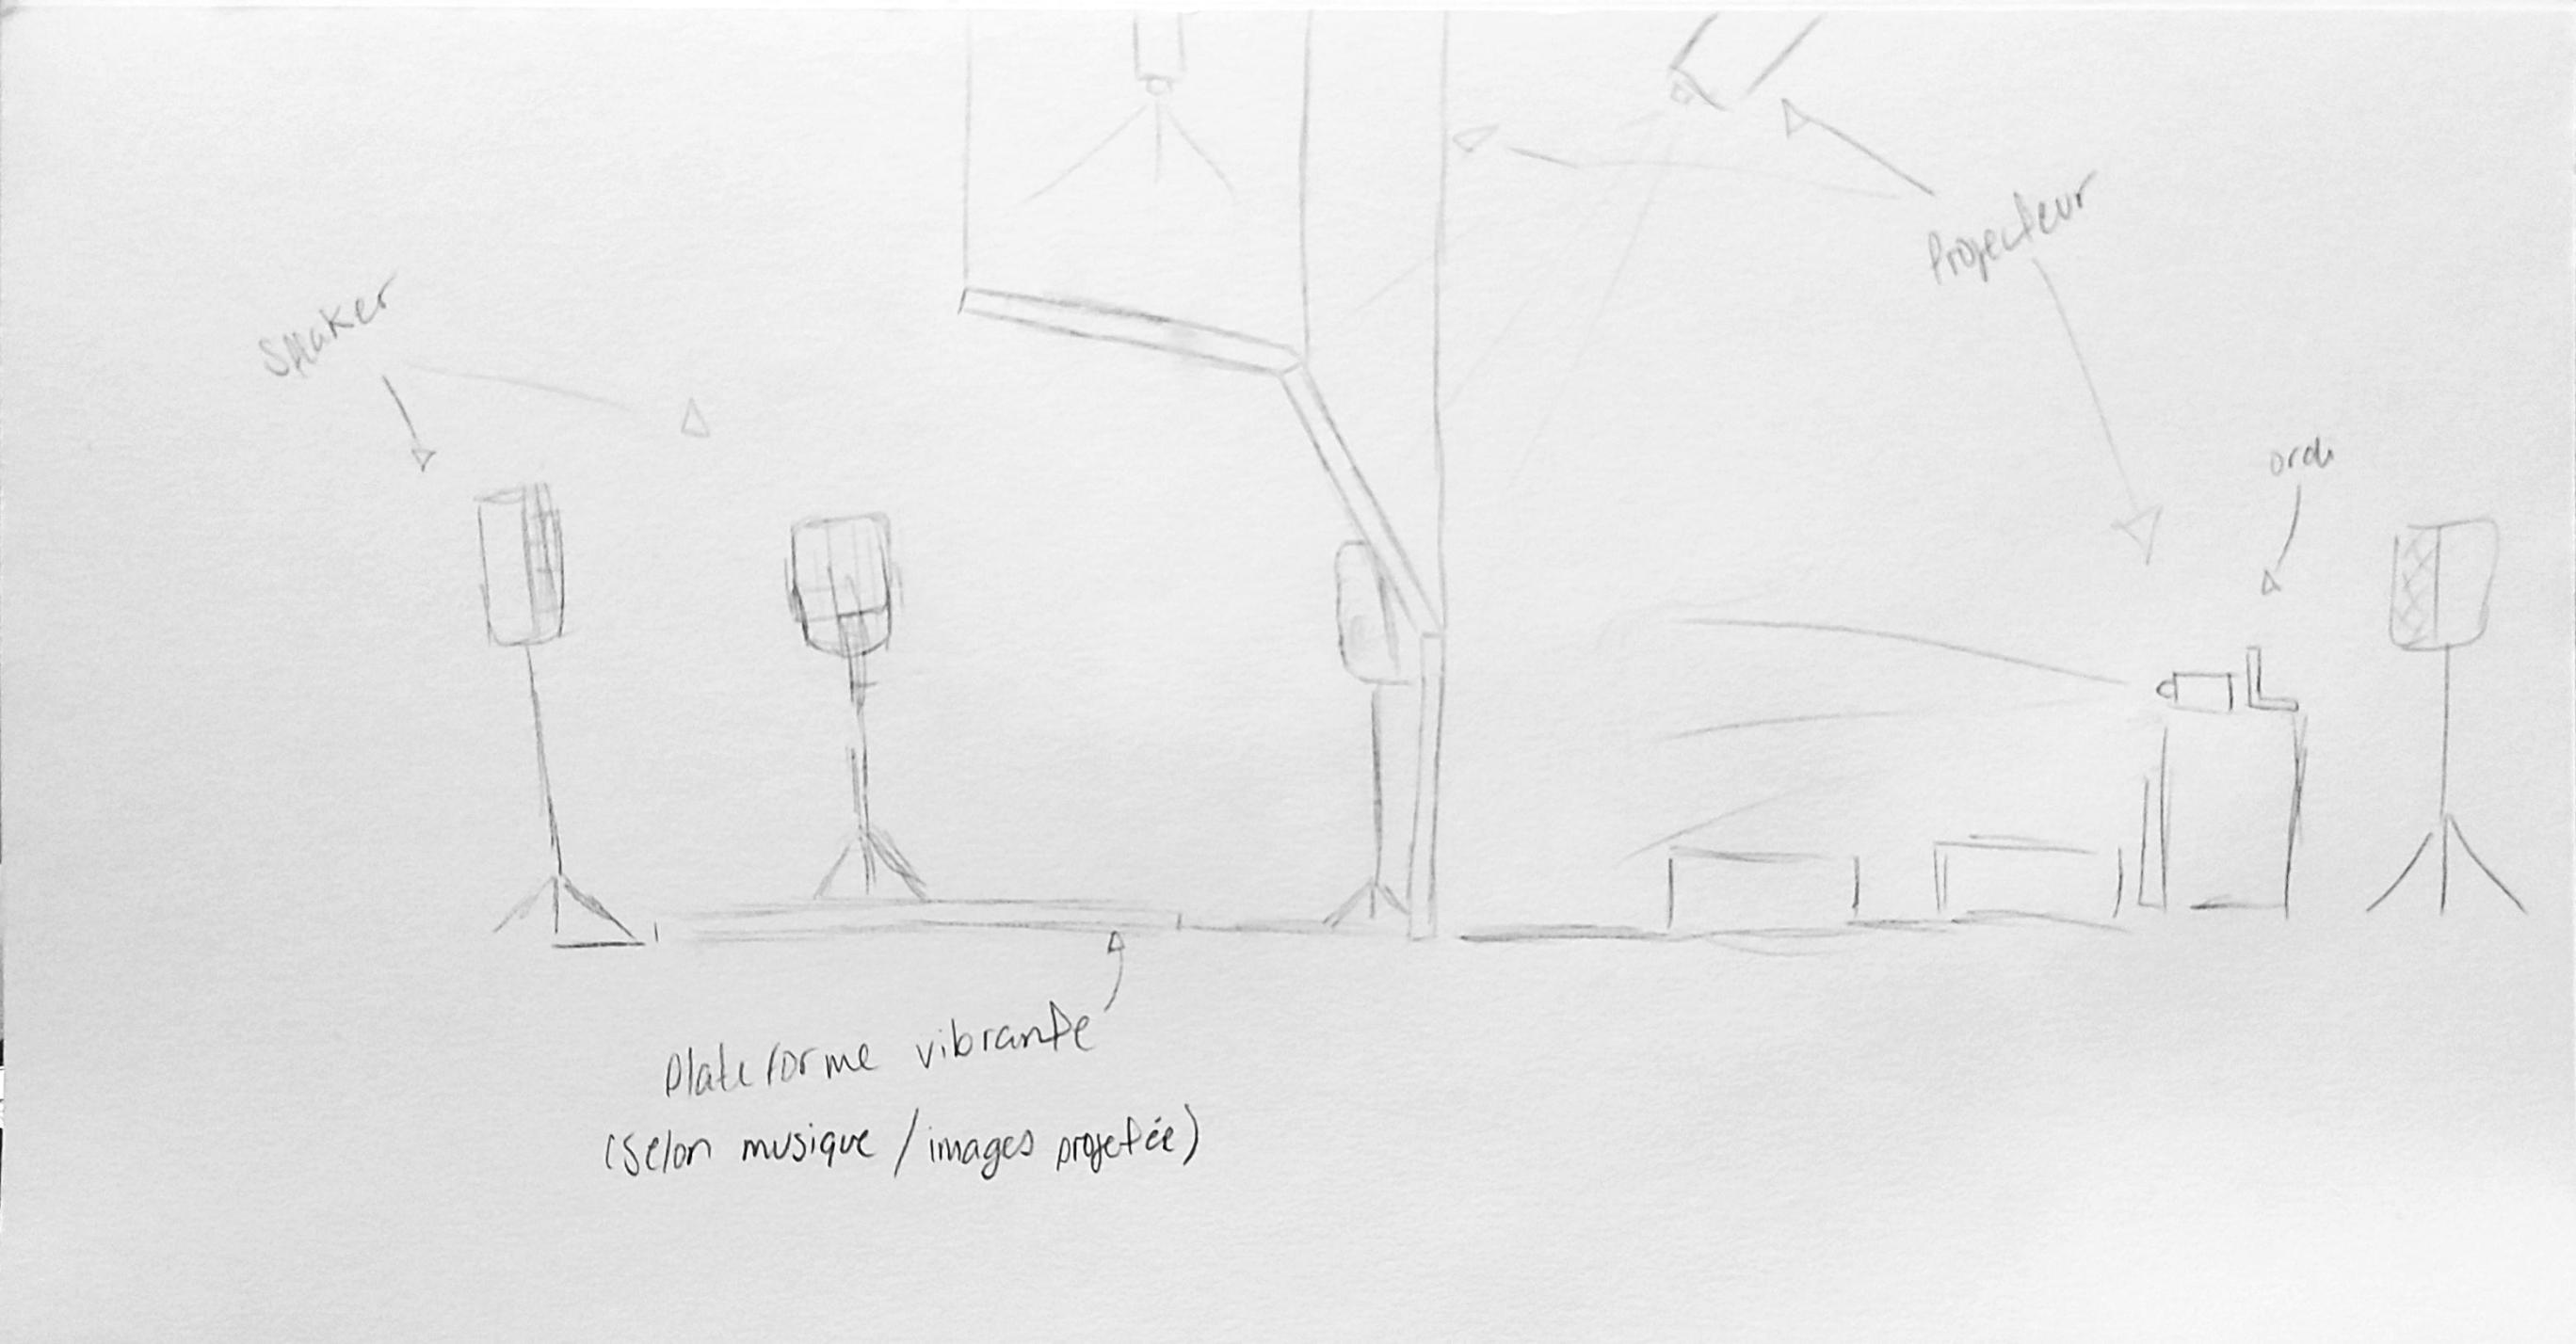 Speaker
Projecteur
ordi
Plateforme vibrante
(Selon musique / images projetée)